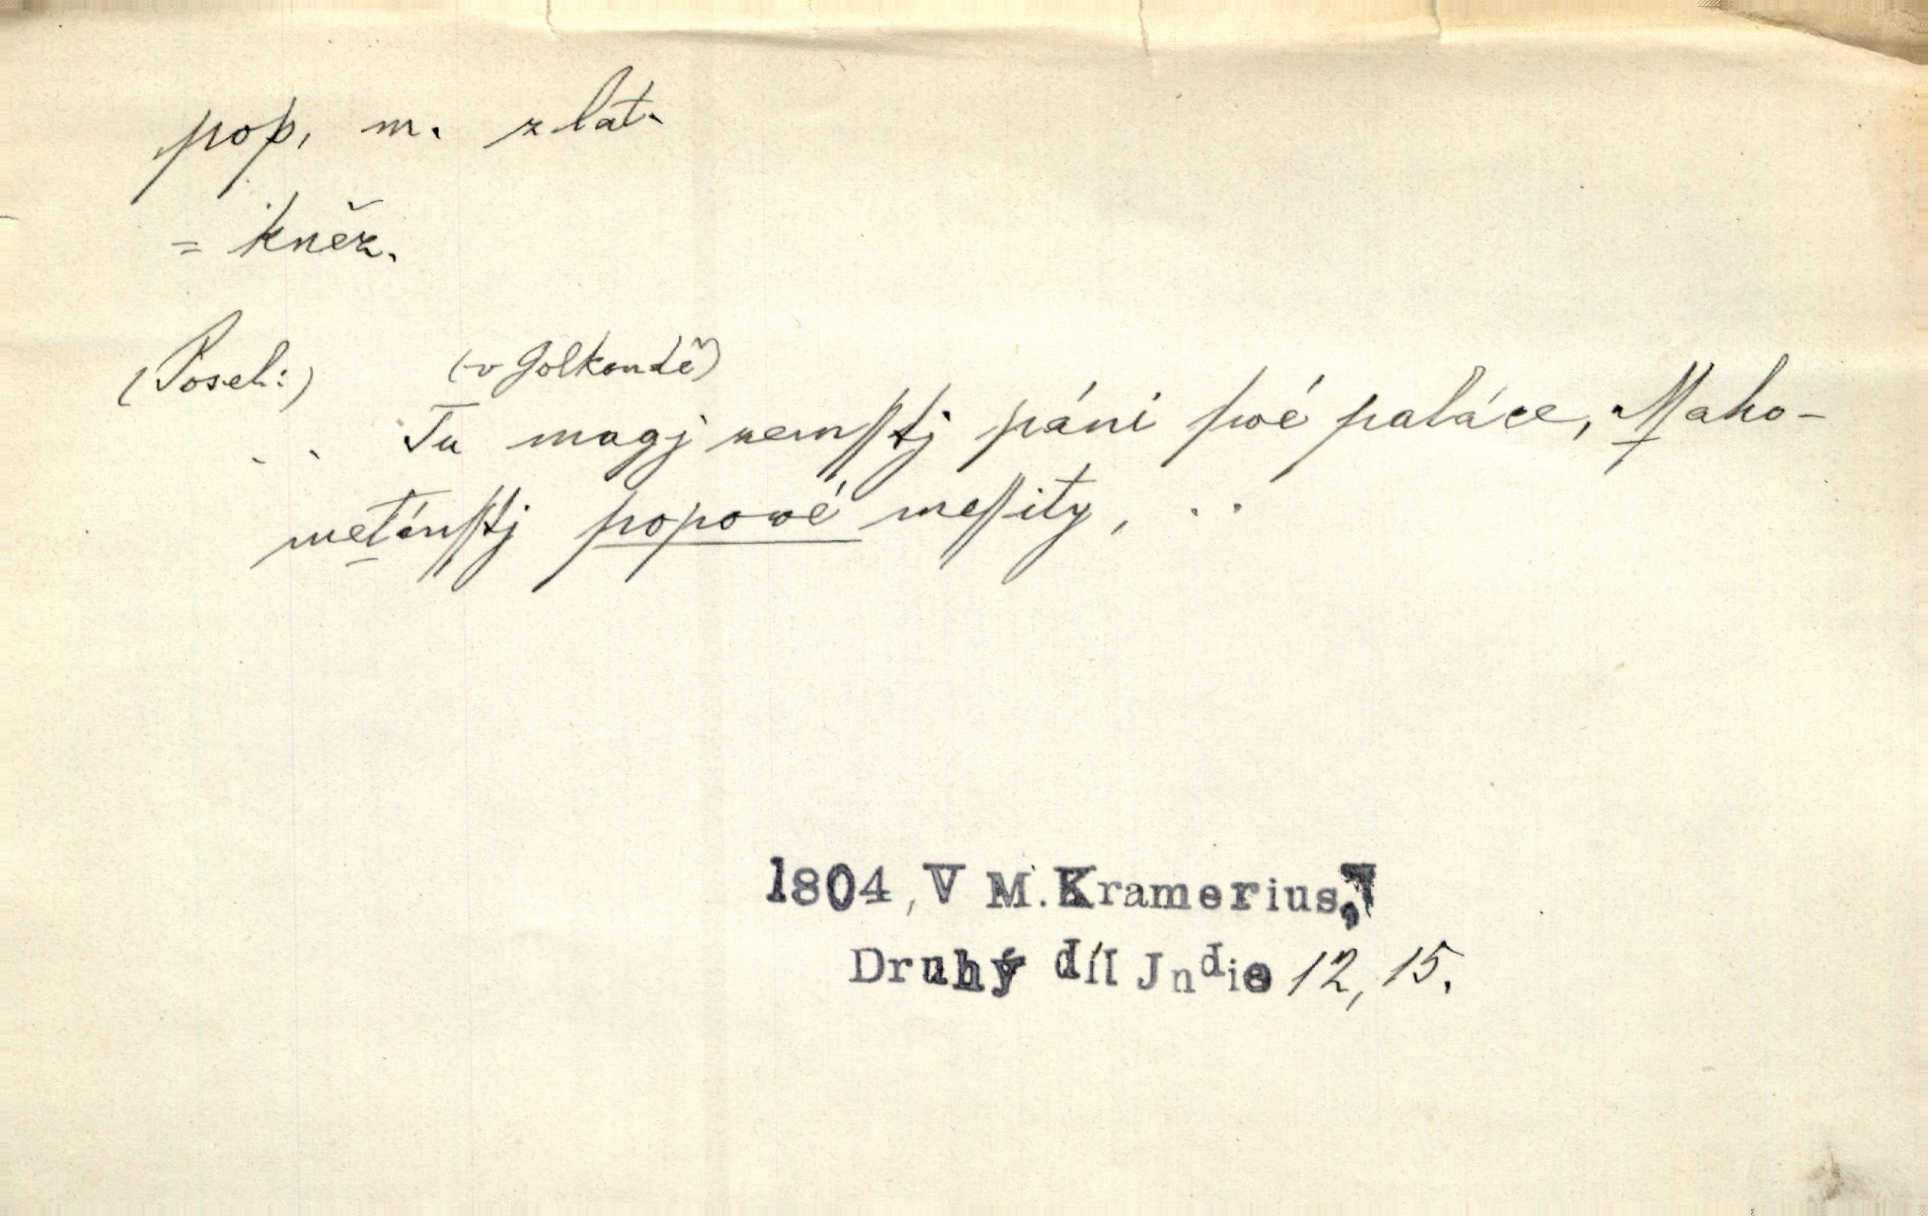 pop, m. z lat.
= kněz.
(Posel:) (v Golkondě)
. . Tu magj zemsſtj páni ſwé paláce, Maho-
metánſstj popowé messity, . .
1804, V M. Kramerius,
Druhý díl Jndie 12, 15.